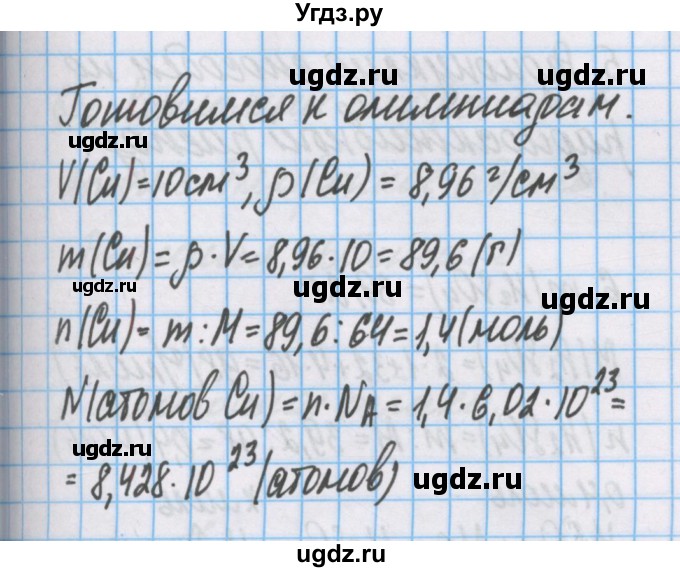 Угдз.ру
ugdz.ru
ugdz.ru
Готовимся к олимпиадам.
ugdz.ru
V(Cu)=10см³, ρ(Cu) = 8,96 г/см³
ugdz.ru
m(Cu)= ρ·V= 8,96·10=89,6 (г)
ugdz.ru
ugdz.ru
n(Cu)= m:M=89,6:64=1,4(моль)
ugdz.ru
ugdz.ru
N(атомов Cu)=n·N_A=1,4·6,02·10²³=
ugdz.ru
= 8,428·10²³(атомов)
ugdz.ru
ugdz.ru